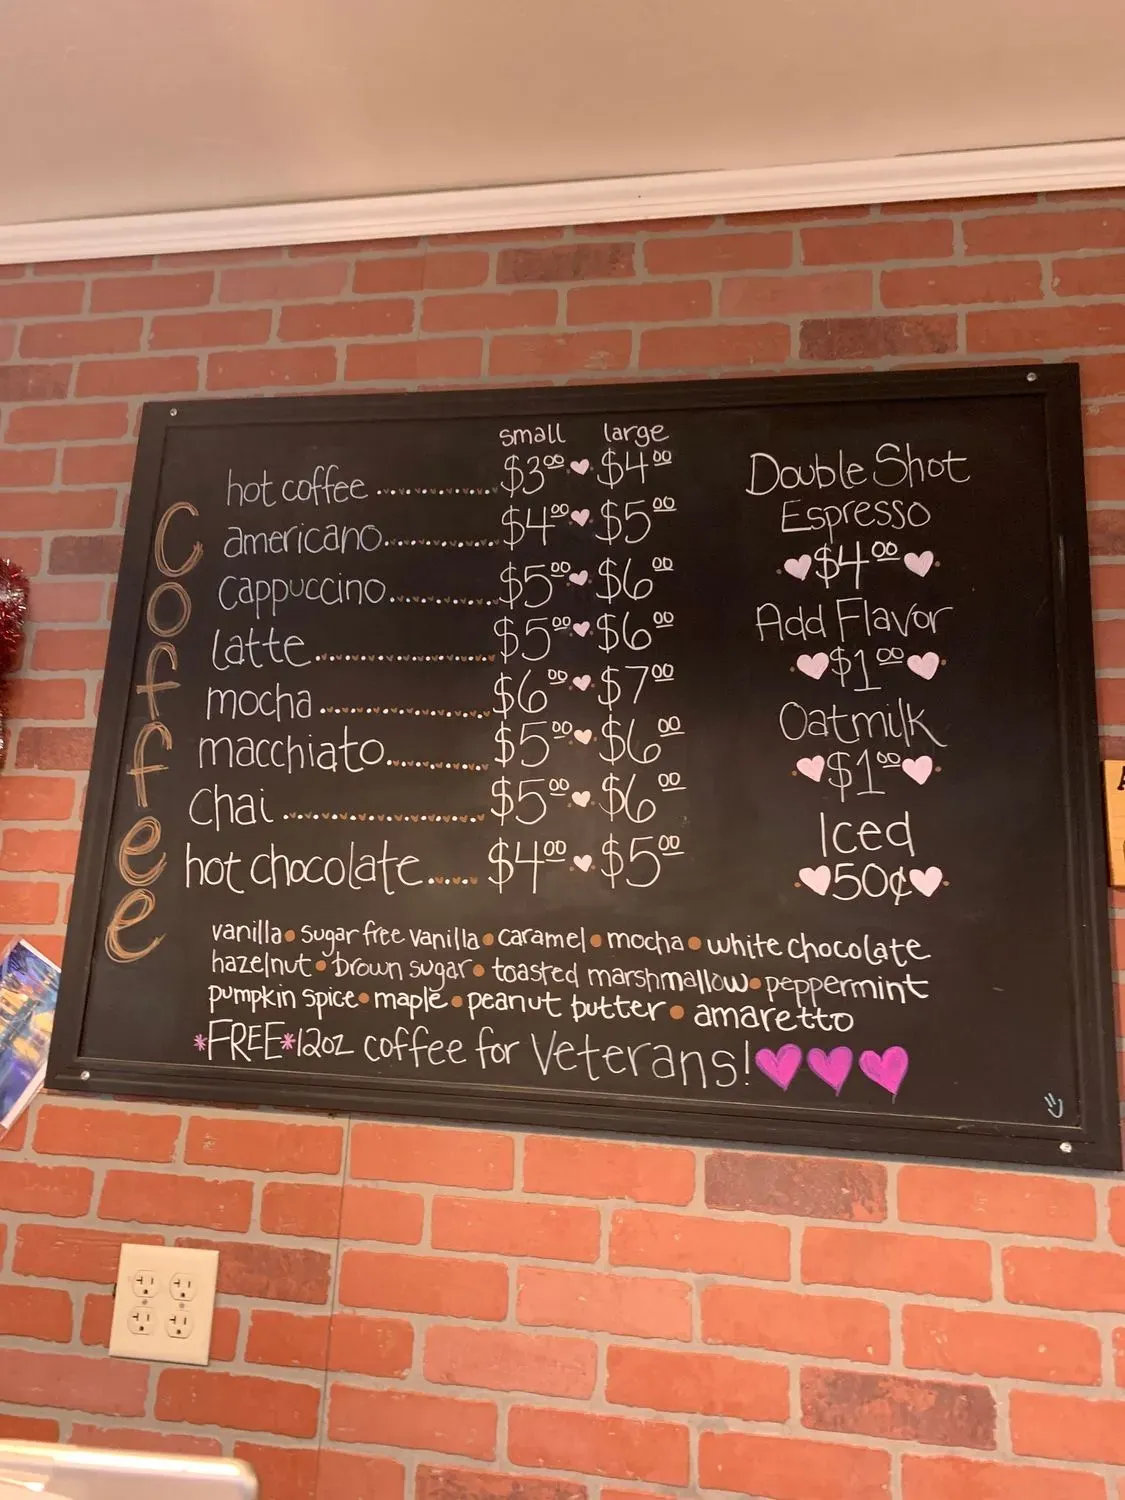 Coffee
small large
hot coffee ............... $3.00 $4.00
americano............... $4.00 $5.00
cappuccino............ $5.00 $6.00
latte....................... $5.00 $6.00
mocha...................... $6.00 $7.00
macchiato............. $5.00 $6.00
chai .......................... $5.00 $6.00
hot chocolate...... $4.00 $5.00
Double Shot
Espresso
$4.00
Add Flavor
$1.00
Oatmilk
$1.00
Iced
50¢
vanilla • sugar free vanilla • caramel • mocha • white chocolate
hazelnut • brown sugar • toasted marshmallow • peppermint
pumpkin spice • maple • peanut butter • amaretto
*FREE* 12oz coffee for Veterans!